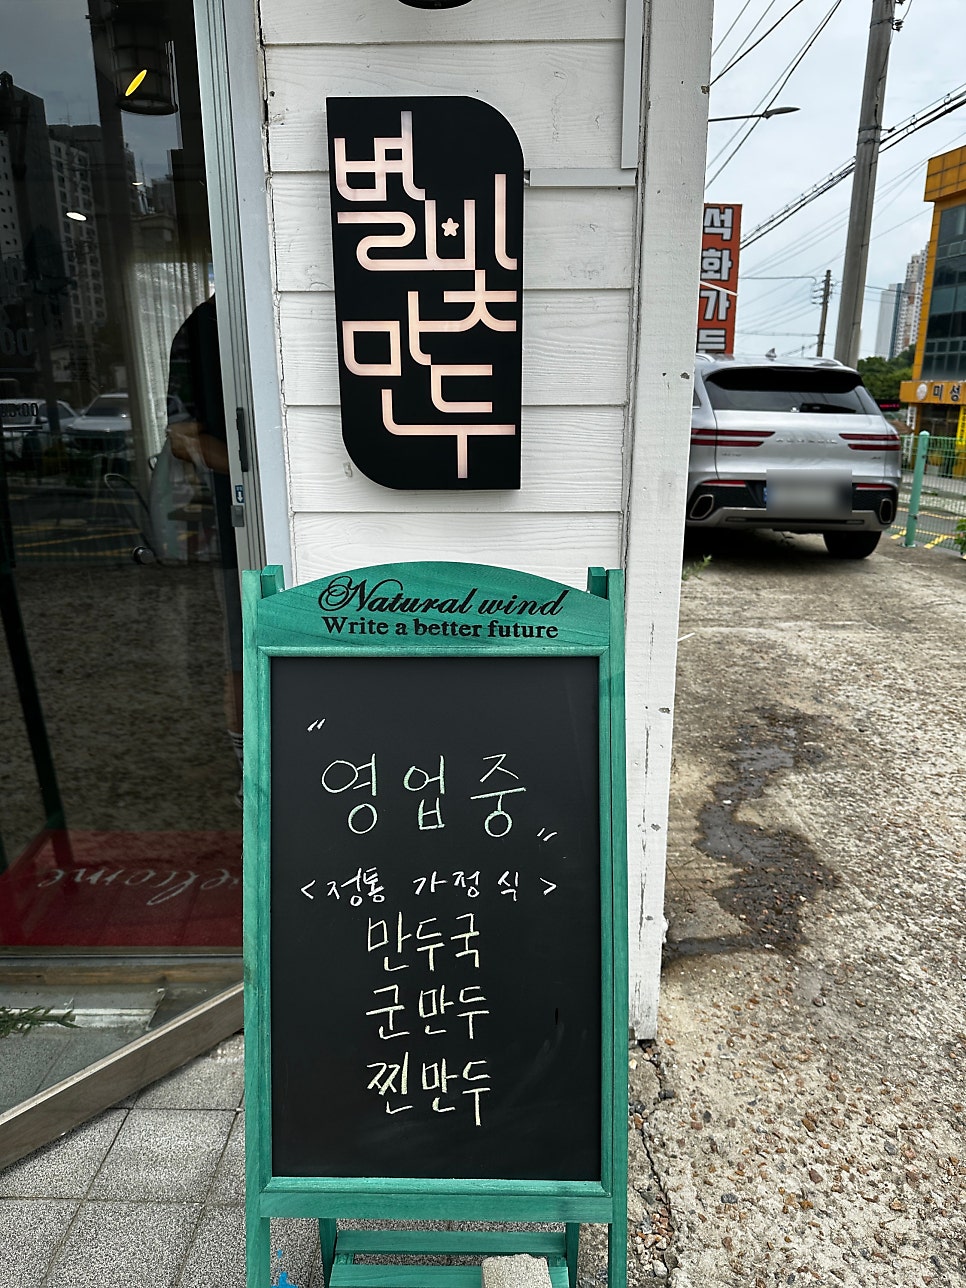 별빛
만두
Natural wind
Write a better future
"영업중"
<정통 가정식>
만두국
군만두
찐만두
welcome
석화가든
미성